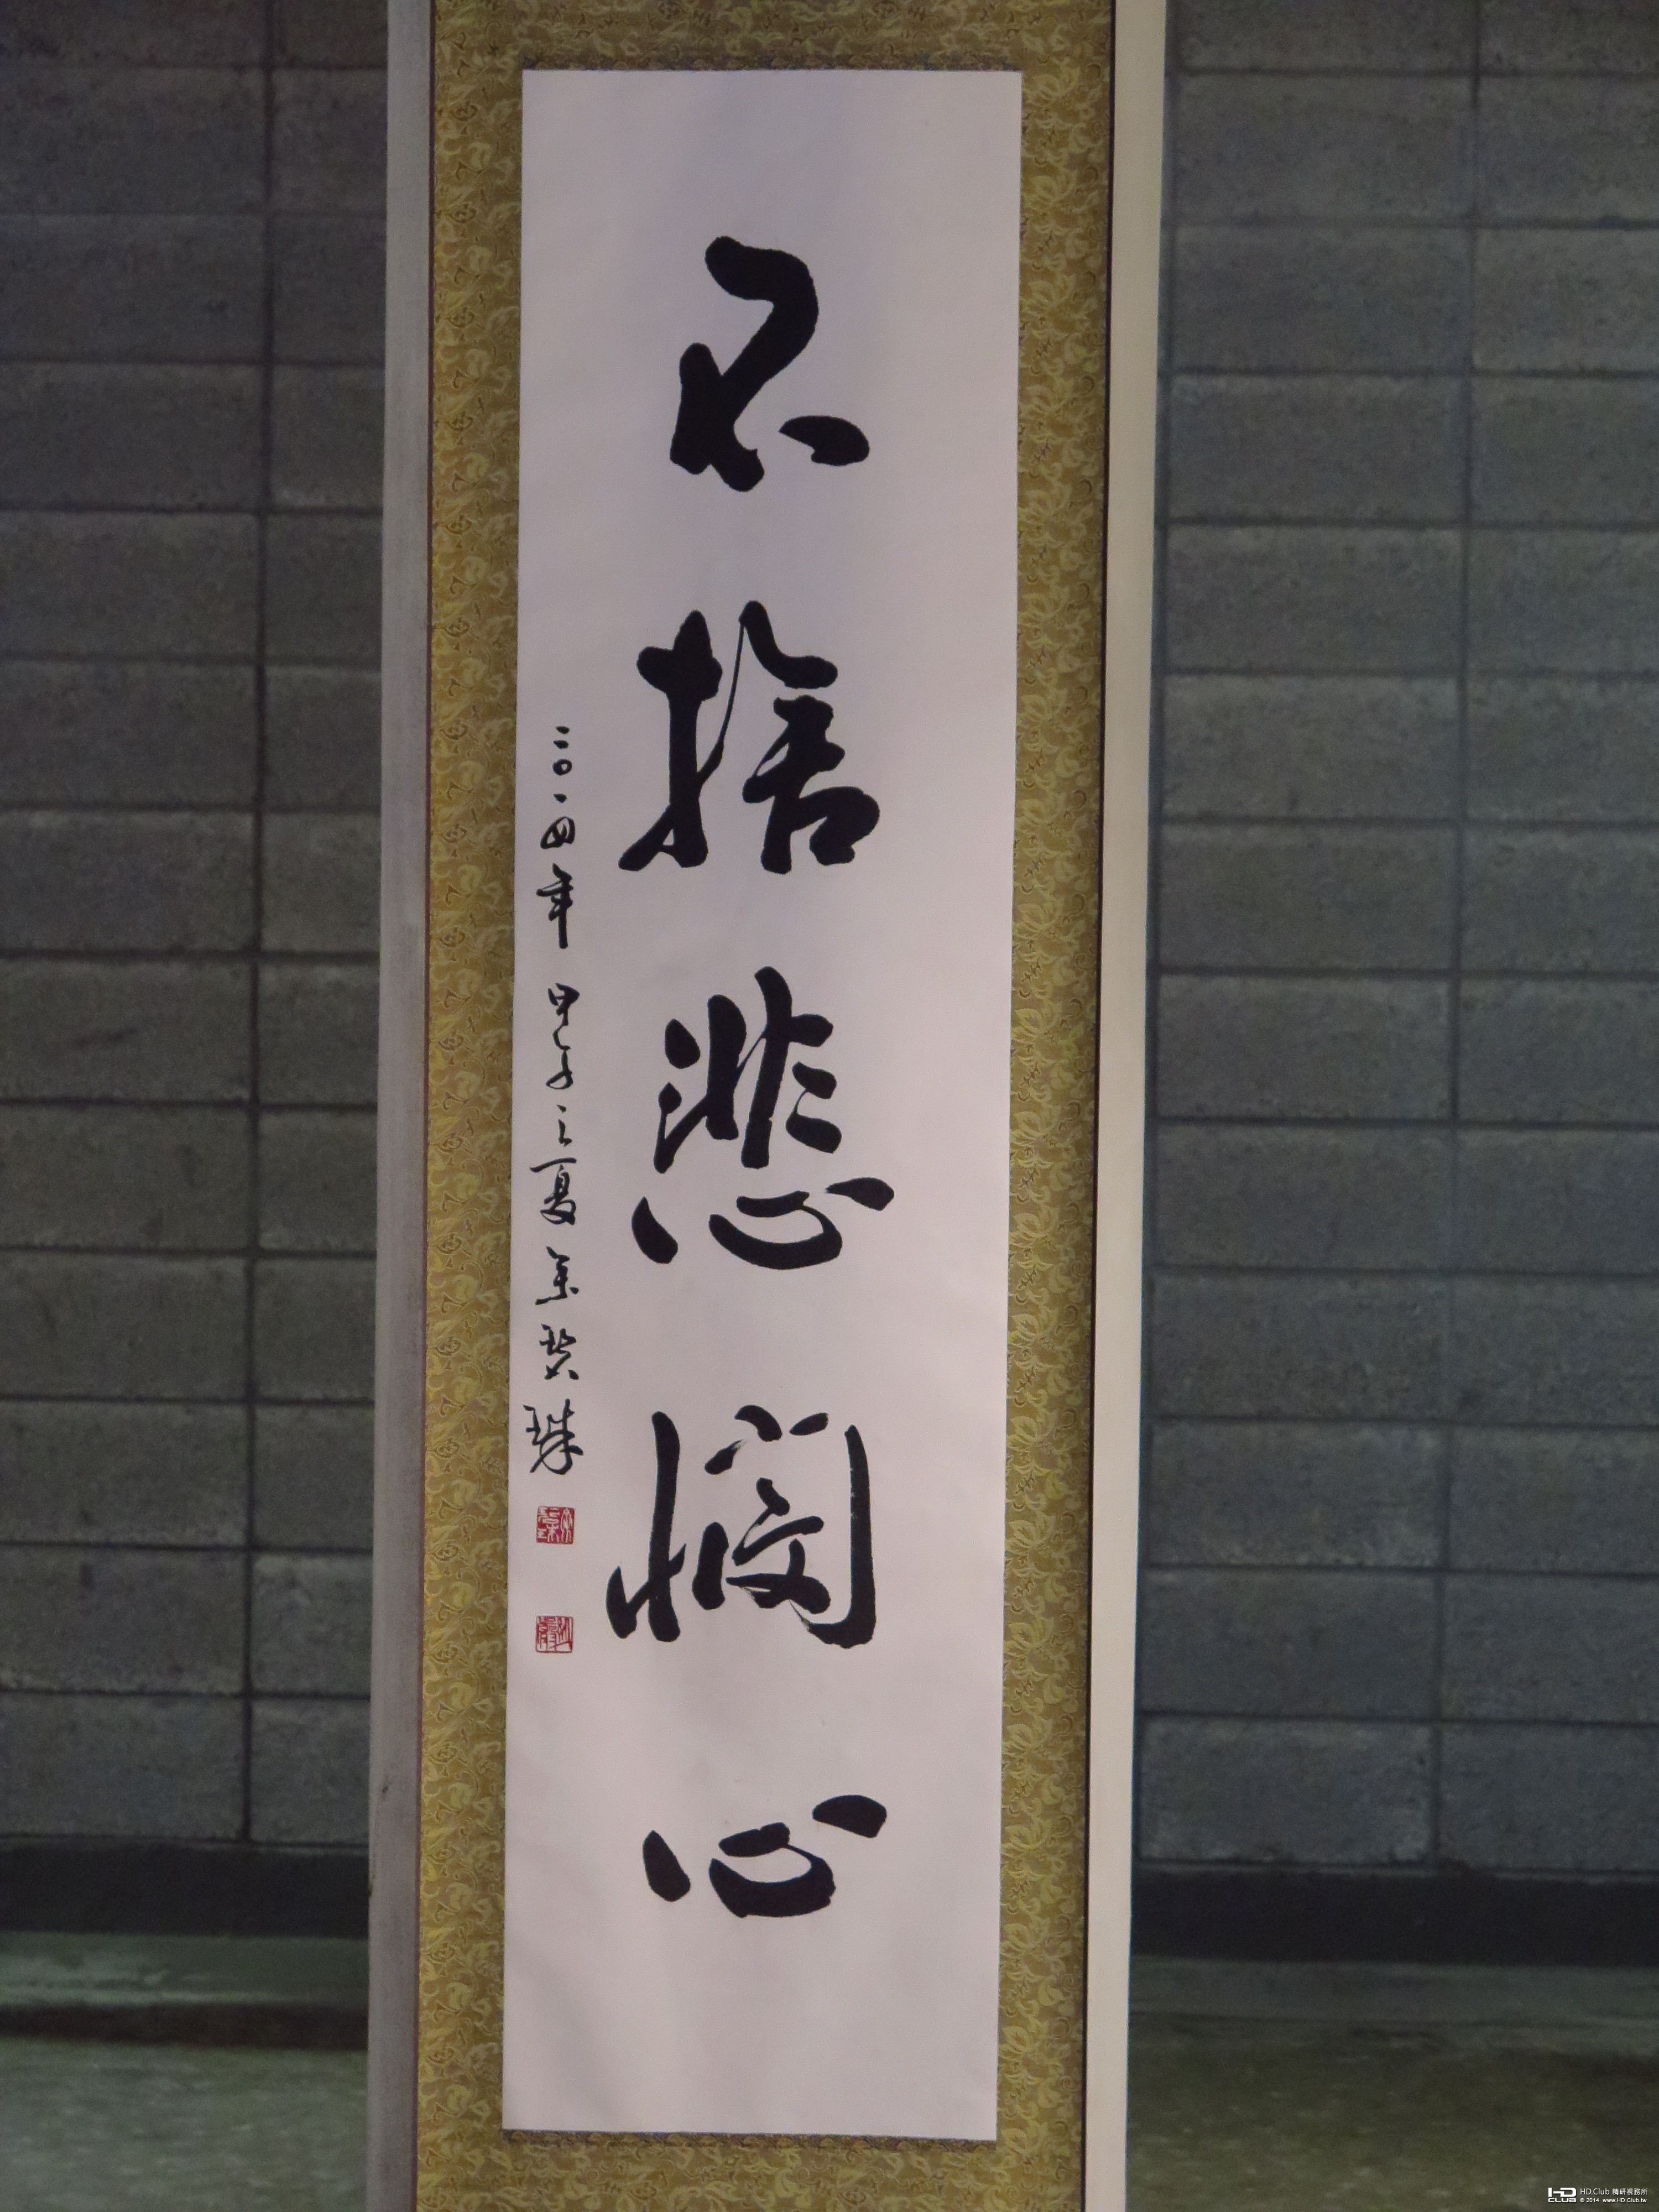 不捨悲憫心
二〇一四年甲午之夏葉碧珠
HD CLUB HD.Club 精研視務所
© 2014 www.HD.Club.tw